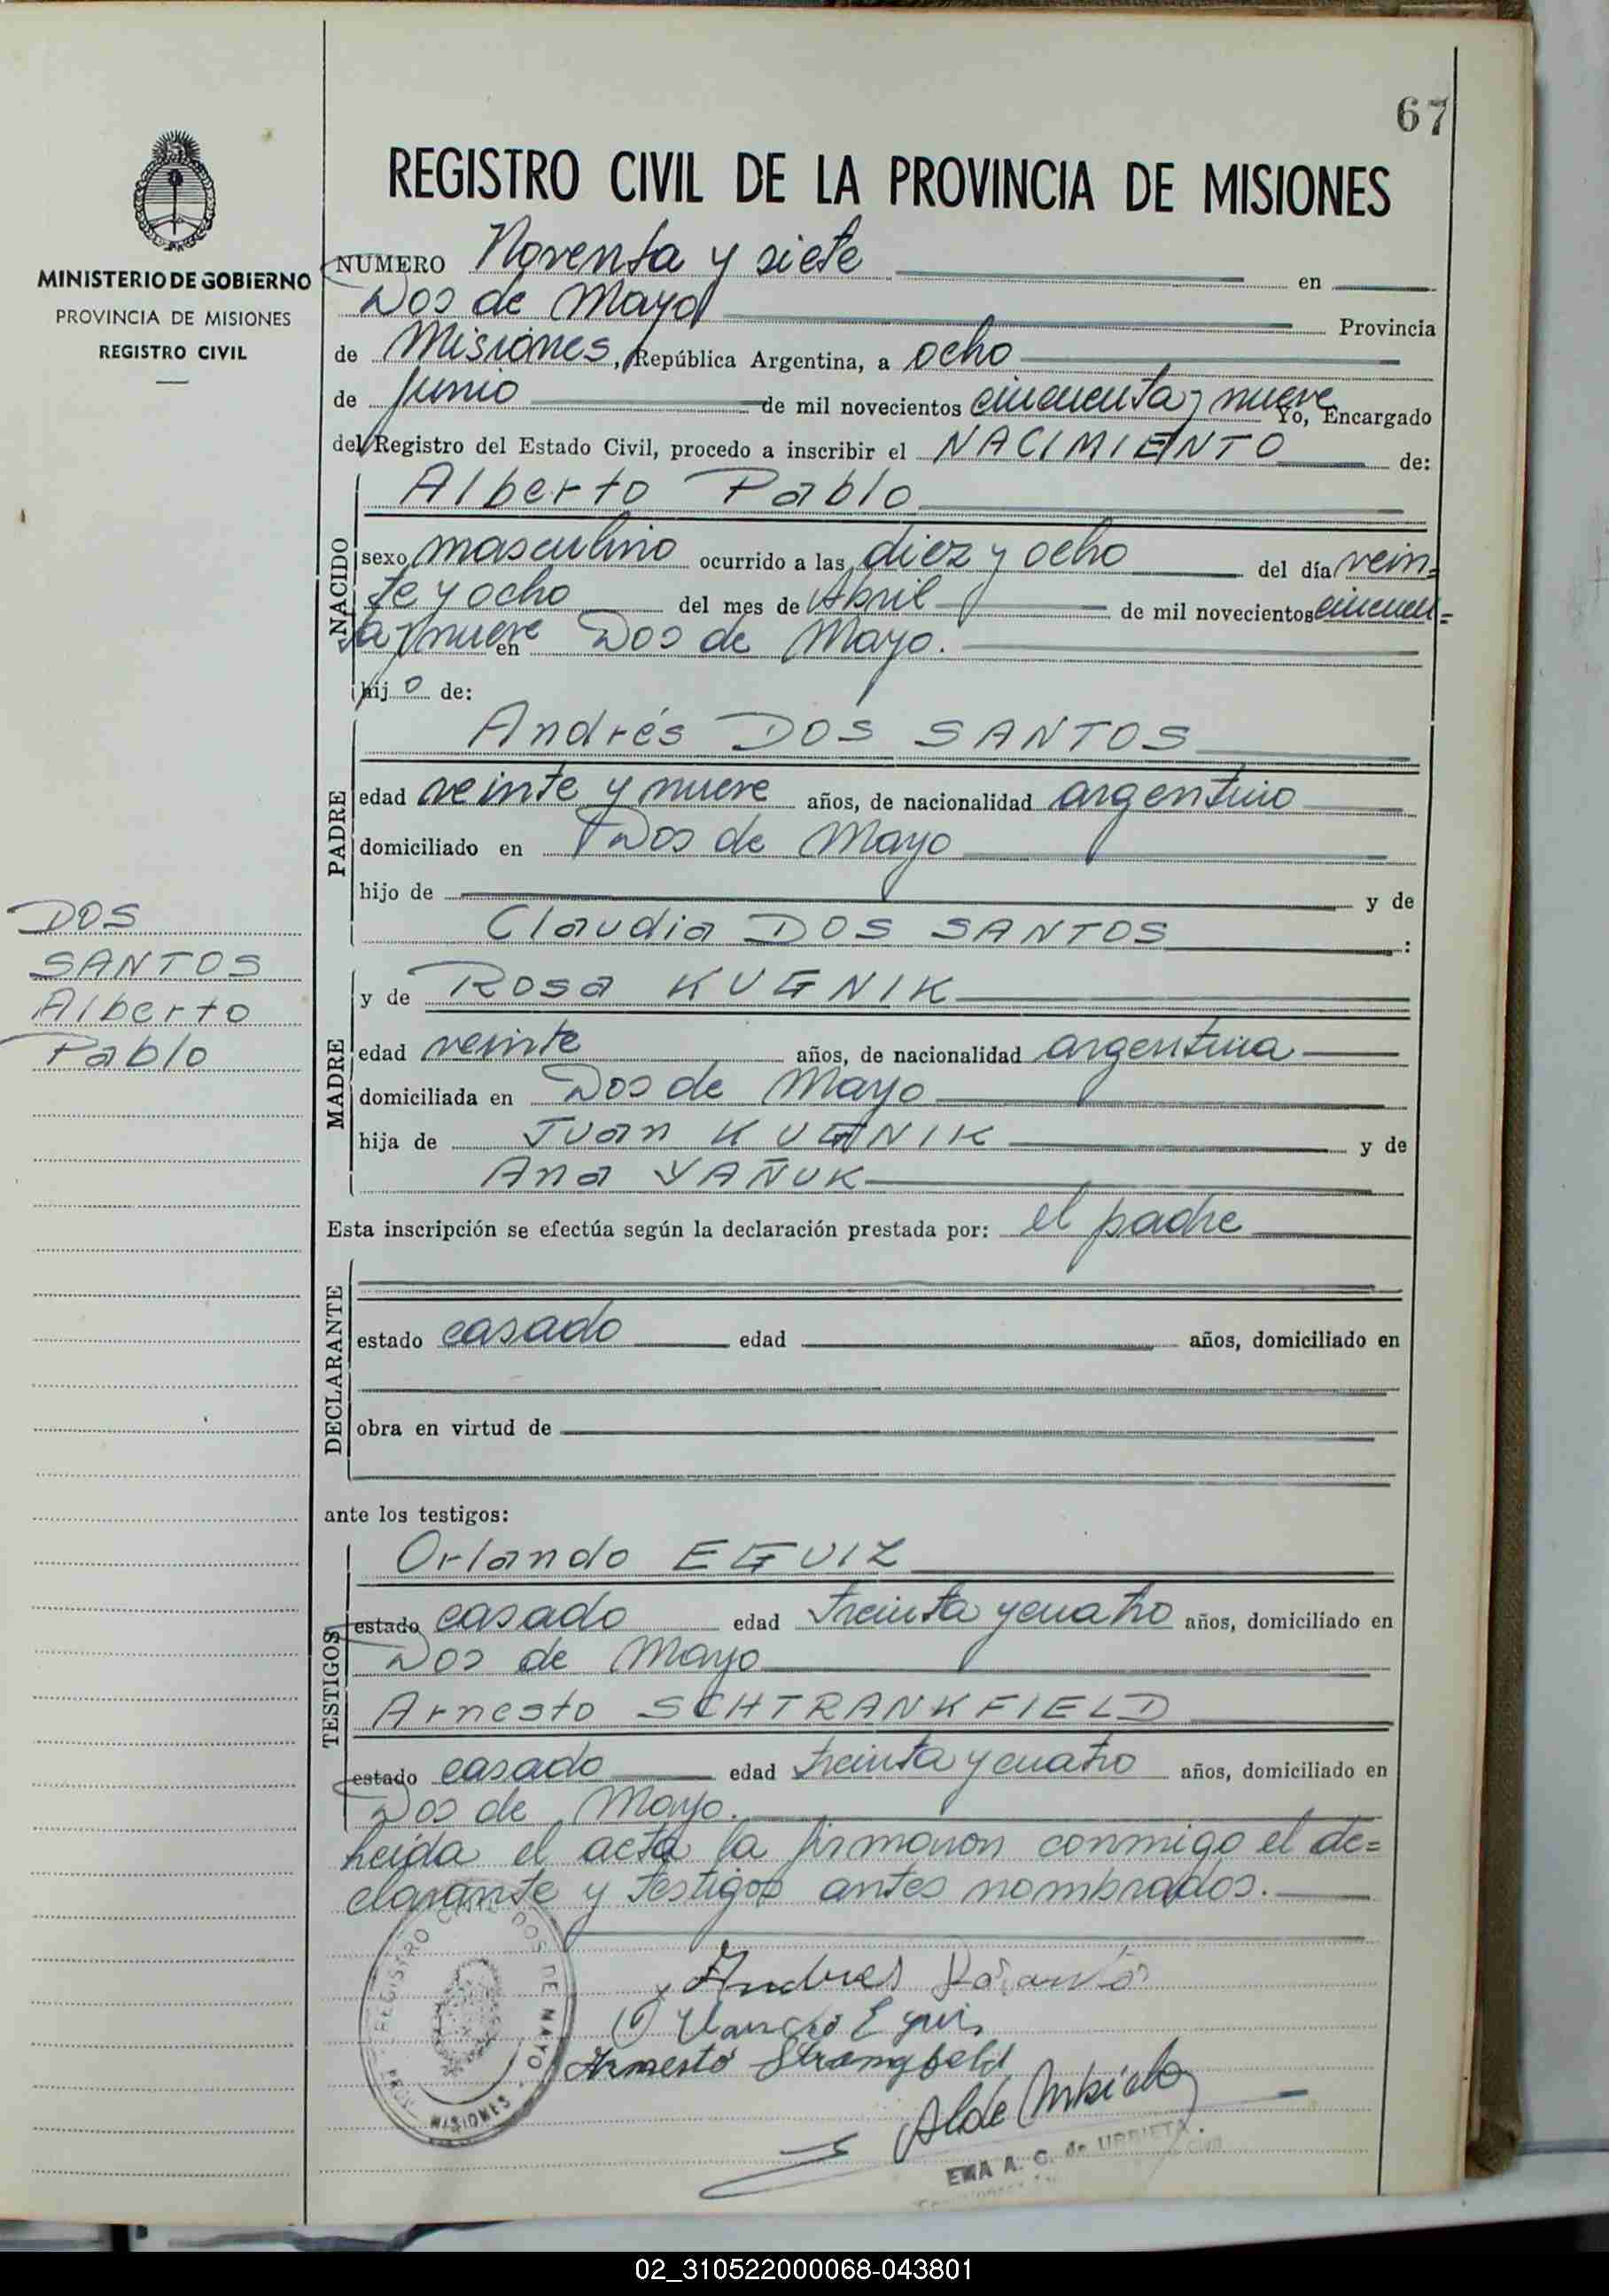 67
REGISTRO CIVIL DE LA PROVINCIA DE MISIONES
MINISTERIO DE GOBIERNO
PROVINCIA DE MISIONES
REGISTRO CIVIL
NUMERO Noventa y siete en
Dos de Mayo Provincia
de Misiones, República Argentina, a ocho
de junio de mil novecientos cincuenta y nueve Yo, Encargado
del Registro del Estado Civil, procedo a inscribir el NACIMIENTO de:
NACIDO
Alberto Pablo
sexo masculino ocurrido a las diez y ocho del día vein=
te y ocho del mes de Abril de mil novecientos cincuen=
ta y nueve en Dos de Mayo.
hijo de:
PADRE
Andrés DOS SANTOS
edad veinte y nueve años, de nacionalidad argentino
domiciliado en Dos de Mayo
hijo de y de
Claudia DOS SANTOS :
DOS
SANTOS
Alberto
Pablo
MADRE
y de Rosa KUGNIK
edad veinte años, de nacionalidad argentina
domiciliada en Dos de Mayo
hija de Juan KUGNIK y de
Ana YAÑUK
Esta inscripción se efectúa según la declaración prestada por: el padre
DECLARANTE
estado casado edad años, domiciliado en
obra en virtud de
ante los testigos:
TESTIGOS
Orlando EGUIZ
estado casado edad treinta y cuatro años, domiciliado en
Dos de Mayo
Arnesto SCHTRANKFIELD
estado casado edad treinta y cuatro años, domiciliado en
Dos de Mayo.
Leída el acta la firmaron conmigo el de=
clarante y testigos antes nombrados.
REGISTRO CIVIL DOS DE MAYO
MISIONES
Andres
Eguis
Arnesto Strangfeld
EMA A. C. de URBIETA
02_310522000068-043801